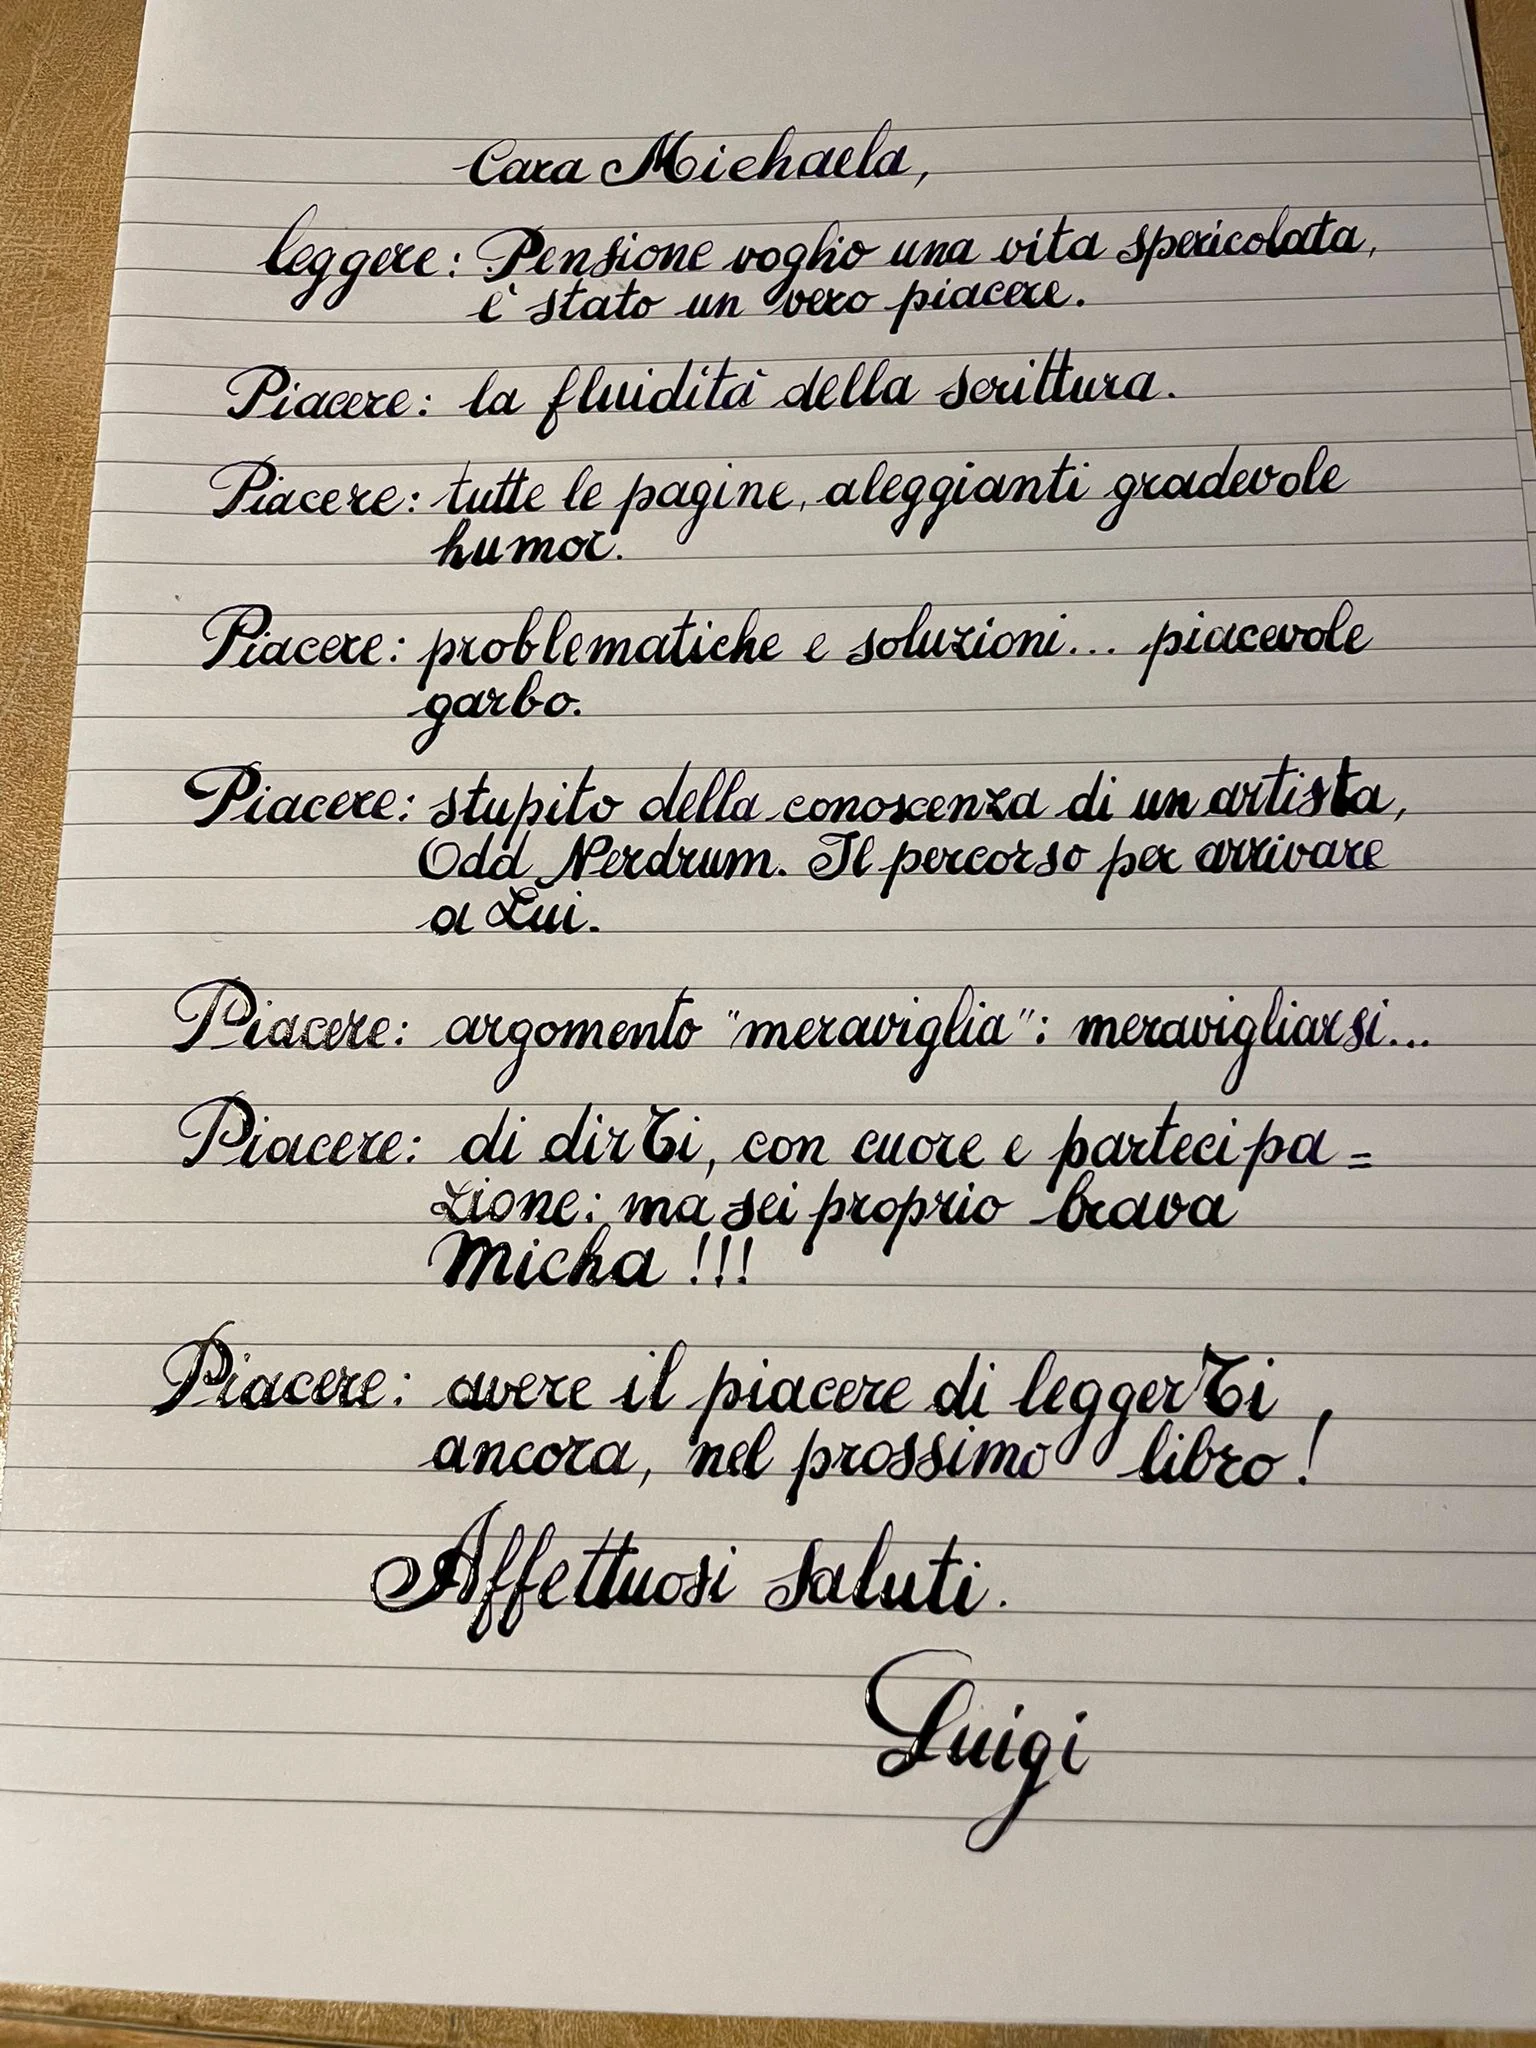 Cara Michaela,
leggere: Pensione voglio una vita spericolata,
è stato un vero piacere.
Piacere: la fluidità della scrittura.
Piacere: tutte le pagine, aleggianti gradevole
humor.
Piacere: problematiche e soluzioni... piacevole
garbo.
Piacere: stupito della conoscenza di un artista,
Odd Nerdrum. Il percorso per arrivare
a Lui.
Piacere: argomento "meraviglia": meravigliarsi...
Piacere: di dirTi, con cuore e partecipa=
zione: ma sei proprio brava
Micha!!!
Piacere: avere il piacere di leggerTi,
ancora, nel prossimo libro!
Affettuosi saluti.
Luigi